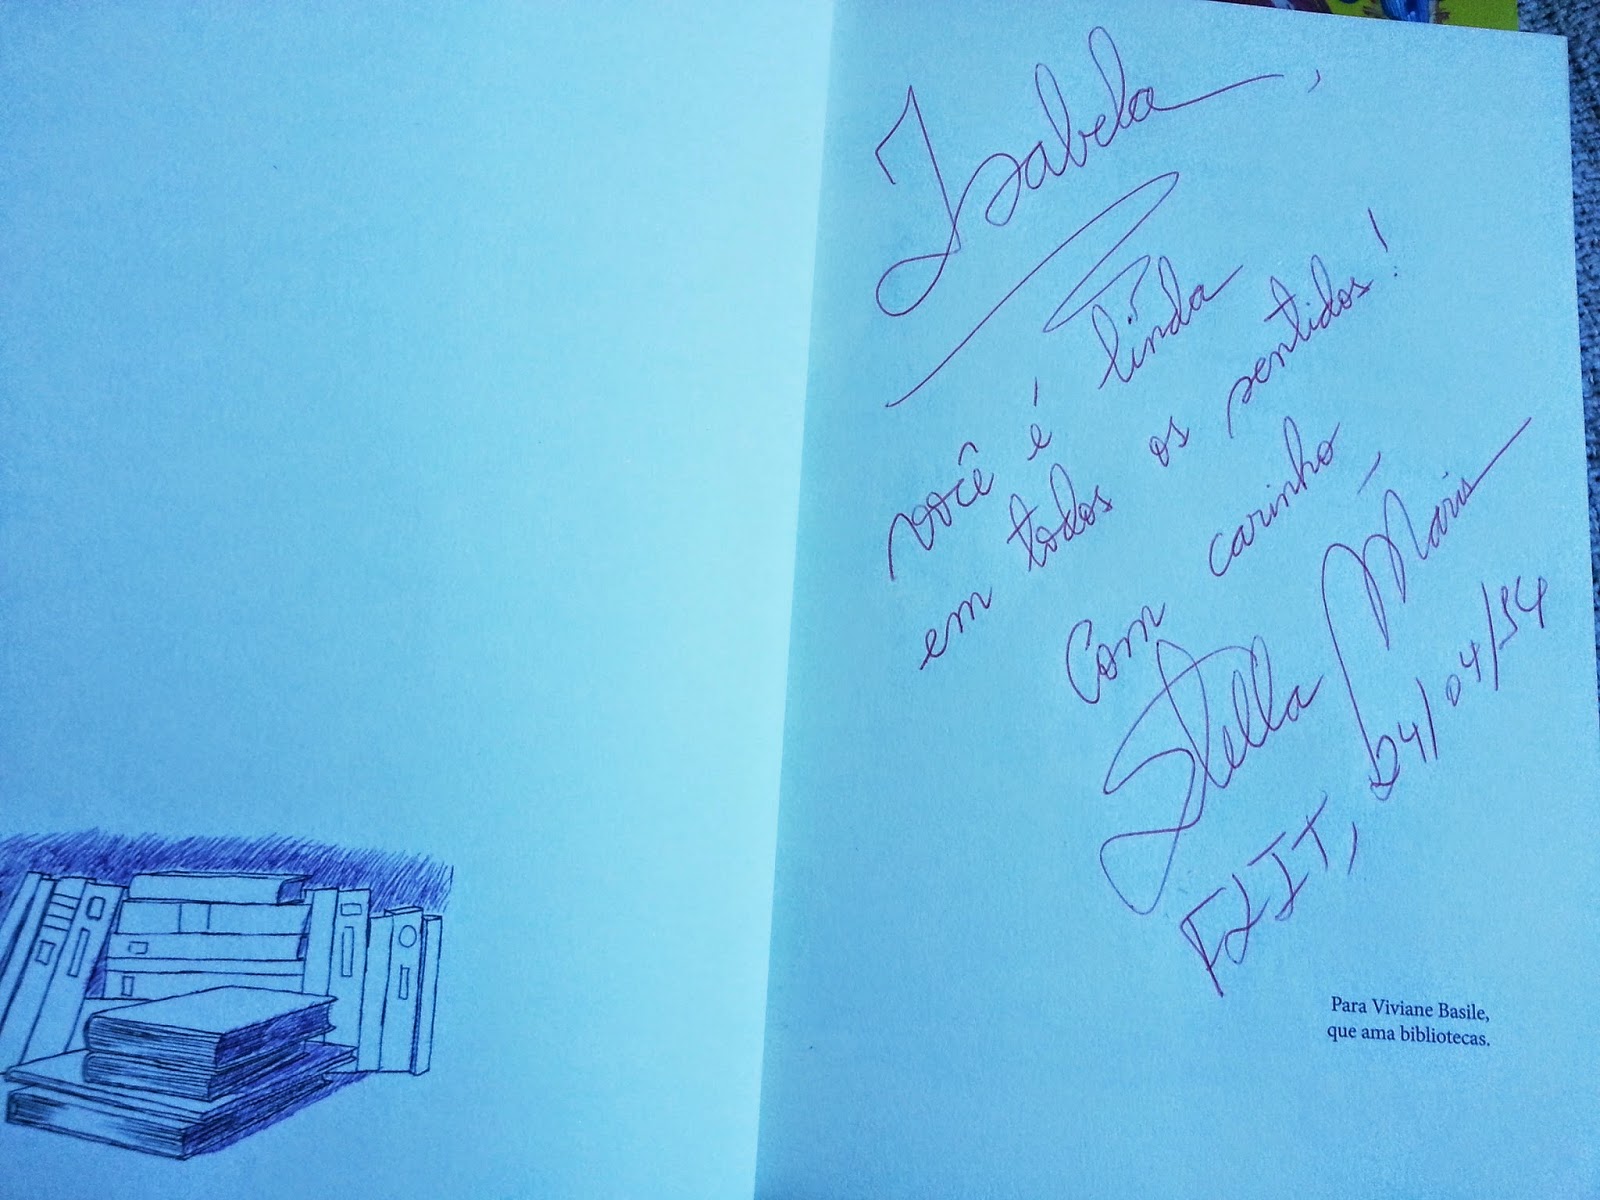 Isabela,
você é linda
em todos os sentidos!
Com carinho
Stella Maris
FLIT, 04/04/14
Para Viviane Basile,
que ama bibliotecas.